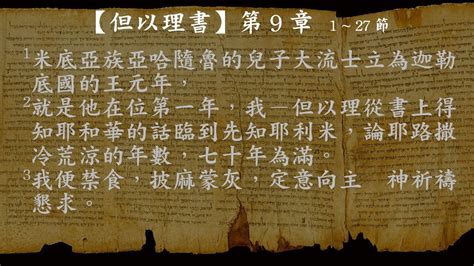 【但以理書】第9章 1～27節
1米底亞族亞哈隨魯的兒子大流士立為迦勒
底國的王元年，
2就是他在位第一年，我－但以理從書上得
知耶和華的話臨到先知耶利米，論耶路撒
冷荒涼的年數，七十年為滿。
3我便禁食，披麻蒙灰，定意向主　神祈禱
懇求。